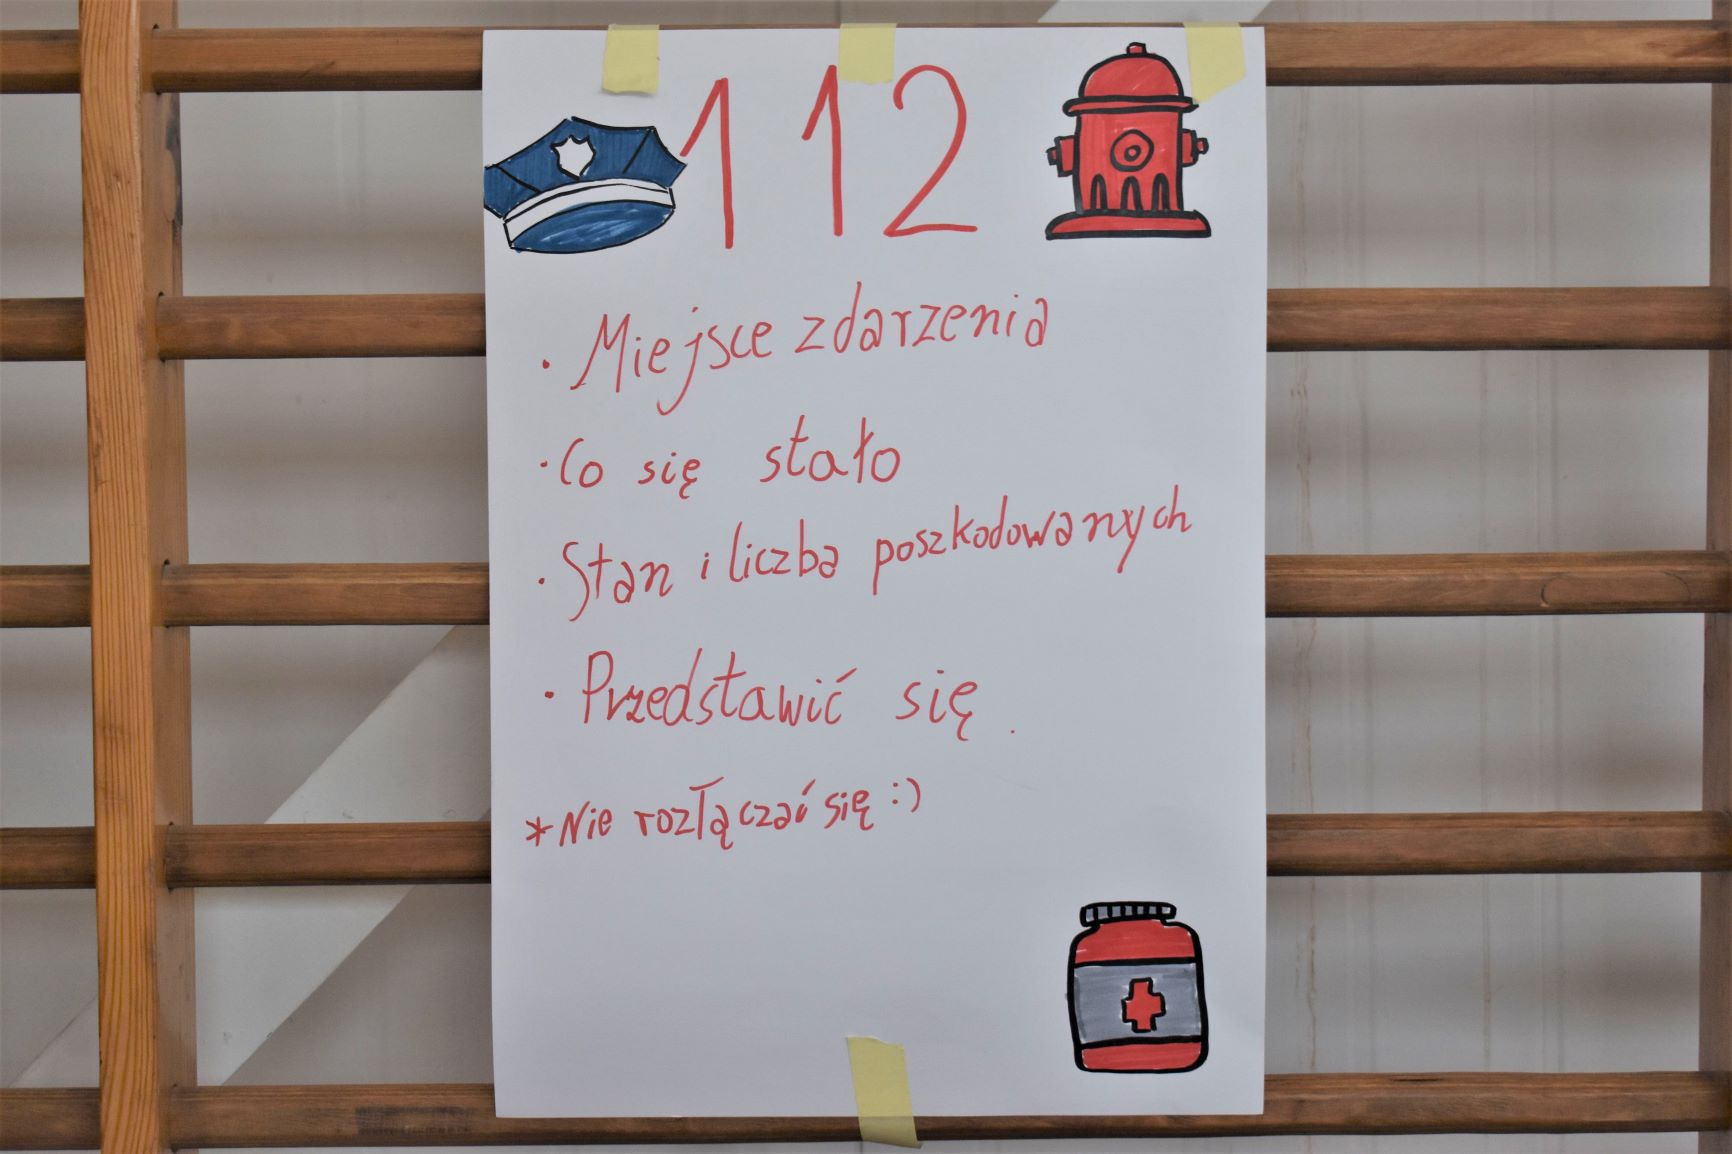 112
· Miejsce zdarzenia
· Co się stało
· Stan i liczba poszkodowanych
· Przedstawić się.
*Nie rozłączać się :)